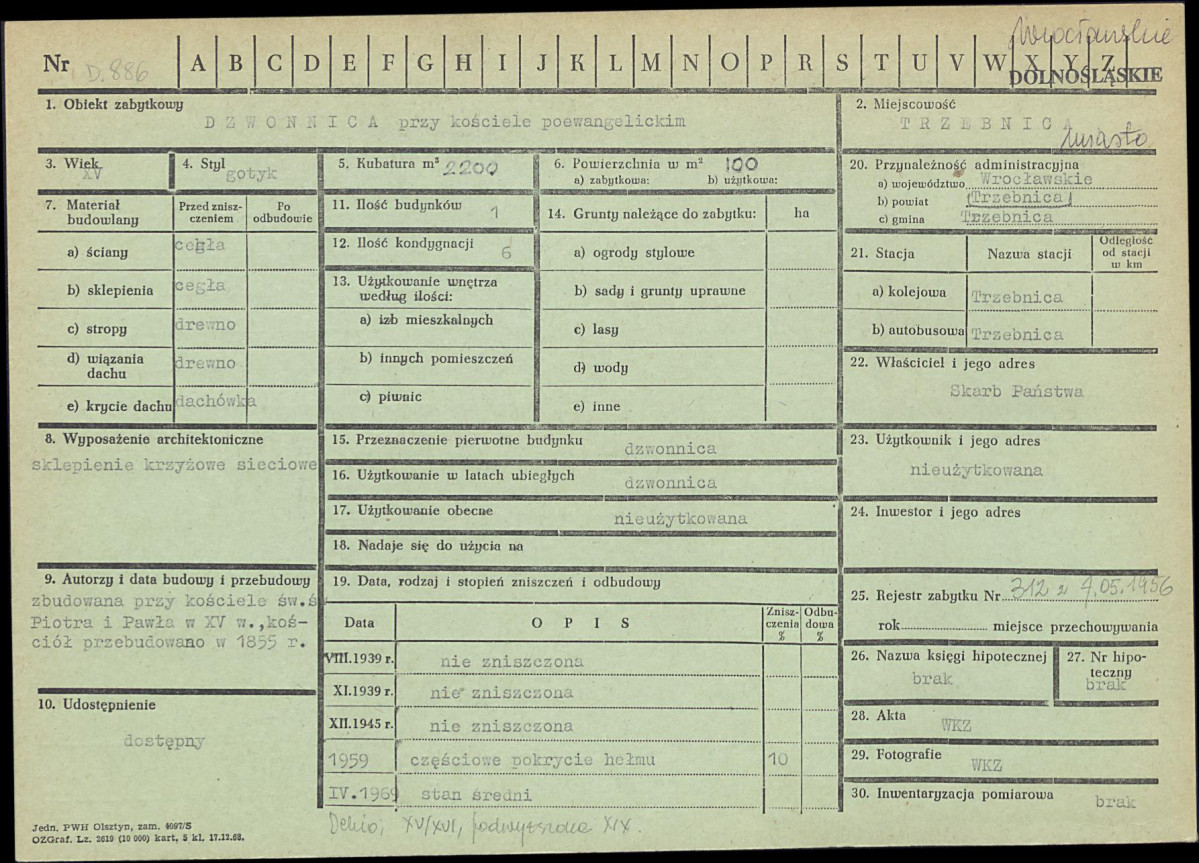 Wrocławskie
Nr D.886 A B C D E F G H I J K L M N O P R S T U V W X Y Z
DOLNOŚLĄSKIE
1. Obiekt zabytkowy
DZWONNICA przy kościele poewangelickim
2. Miejscowość
TRZEBNICA
miasto
3. Wiek
XV
4. Styl
gotyk
5. Kubatura m³ 2200
6. Powierzchnia w m² 100
a) zabytkowa: b) użytkowa:
7. Materiał budowlany
Przed zniszczeniem
Po odbudowie
a) ściany cegła
b) sklepienia cegła
c) stropy drewno
d) wiązania dachu drewno
e) krycie dachu dachówka
11. Ilość budynków 1
12. Ilość kondygnacji 6
13. Użytkowanie wnętrza według ilości:
a) izb mieszkalnych
b) innych pomieszczeń
c) piwnic
14. Grunty należące do zabytku: ha
a) ogrody stylowe
b) sady i grunty uprawne
c) lasy
d) wody
e) inne
20. Przynależność administracyjna
a) województwo Wrocławskie
b) powiat (Trzebnica)
c) gmina Trzebnica
21. Stacja
Nazwa stacji
Odległość od stacji w km
a) kolejowa Trzebnica
b) autobusowa Trzebnica
22. Właściciel i jego adres
Skarb Państwa
8. Wyposażenie architektoniczne
sklepienie krzyżowe sieciowe
15. Przeznaczenie pierwotne budynku dzwonnica
16. Użytkowanie w latach ubiegłych dzwonnica
17. Użytkowanie obecne nieużytkowana
18. Nadaje się do użycia na
23. Użytkownik i jego adres
nieużytkowana
24. Inwestor i jego adres
9. Autorzy i data budowy i przebudowy
zbudowana przy kościele św.ś
Piotra i Pawła w XV w.,koś-
ciół przebudowano w 1855 r.
10. Udostępnienie
dostępny
19. Data, rodzaj i stopień zniszczeń i odbudowy
Data
OPIS
Zniszczenia %
Odbudowa %
VIII.1939 r. nie zniszczona
XI.1939 r. nie zniszczona
XII.1945 r. nie zniszczona
1959 częściowe pokrycie hełmu 10
IV.1969 stan średni
Dehio; XV/XVI, podwyższona XIX.
25. Rejestr zabytku Nr 312 z 7.05.1956
rok miejsce przechowywania
26. Nazwa księgi hipotecznej
brak
27. Nr hipoteczny
brak
28. Akta
WKZ
29. Fotografie
WKZ
30. Inwentaryzacja pomiarowa brak
Jedn. PWH Olsztyn, zam. 4097/S
OZGraf. Lz. 2619 (10 000) kart. 5 kl. 17.12.68.